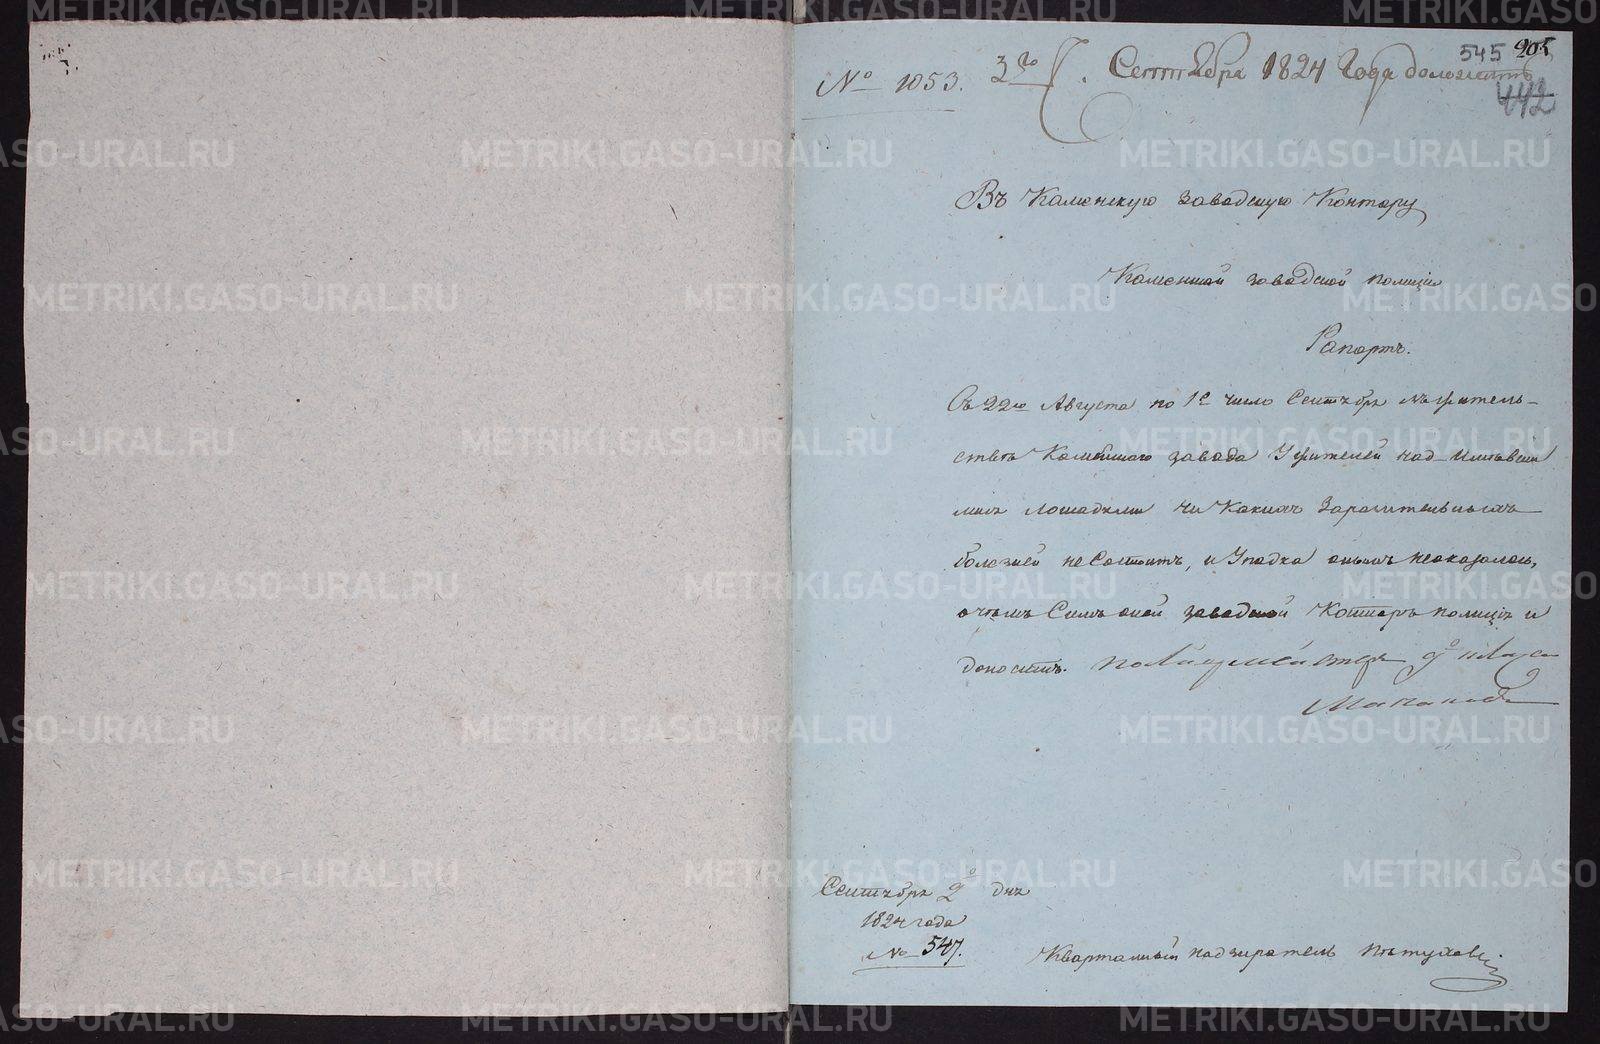 545 205
442
№ 1053. 3го Сентября 1824 Года доложить
Въ Каменскую заводскую Контору
Каменской заводской полиции
Рапортъ.
Съ 22го Августа по 1е число Сентября въ жительствѣ Каменскаго завода
У жителей над имѣвши
мись лошадьми ни Какихъ Заразительныхъ
болезней не Состоитъ, и Упадка онымъ неоказалось,
очемъ Симъ оной заводской Конторѣ полиція и
доноситъ. полицмейстеръ 9го класса
Сентября 2го дня
1824 года
№ 547.
Квартальный надзиратель Пѣтуховъ
METRIKI.GASO-URAL.RU